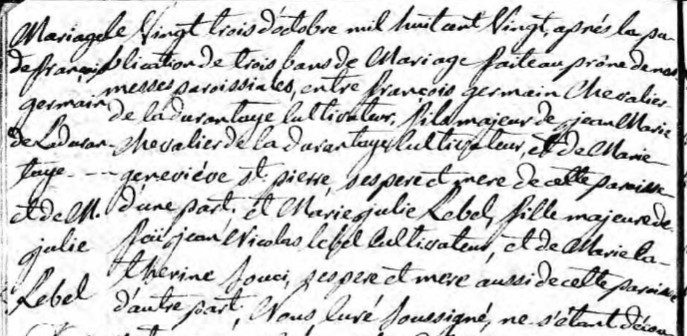 Mariage
de françois
germain
de Laduran-
taye - - -
et de M.
julie
Lebel
le Vingt trois d'octobre mil huit cent Vingt, aprés la pu-
blication de trois bans de Mariage faite au prône de nos
messes paroissiales, entre françois germain Chevalier
de la durantaye Cultivateur, fils majeur de jean Marie
Chevalier de la durantaye Cultivateur, et de Marie
geneviéve st pierre, ses pere et mere de cette paroisse
d'une part, et Marie julie Lebel, fille majeure de
feü jean Nicolas lebel Cultivateur, et de Marie Ca-
therine Souci, ses pere et mere aussi de cette paroisse
d'autre part, Nous Curé soussigné, ne s'étant décou